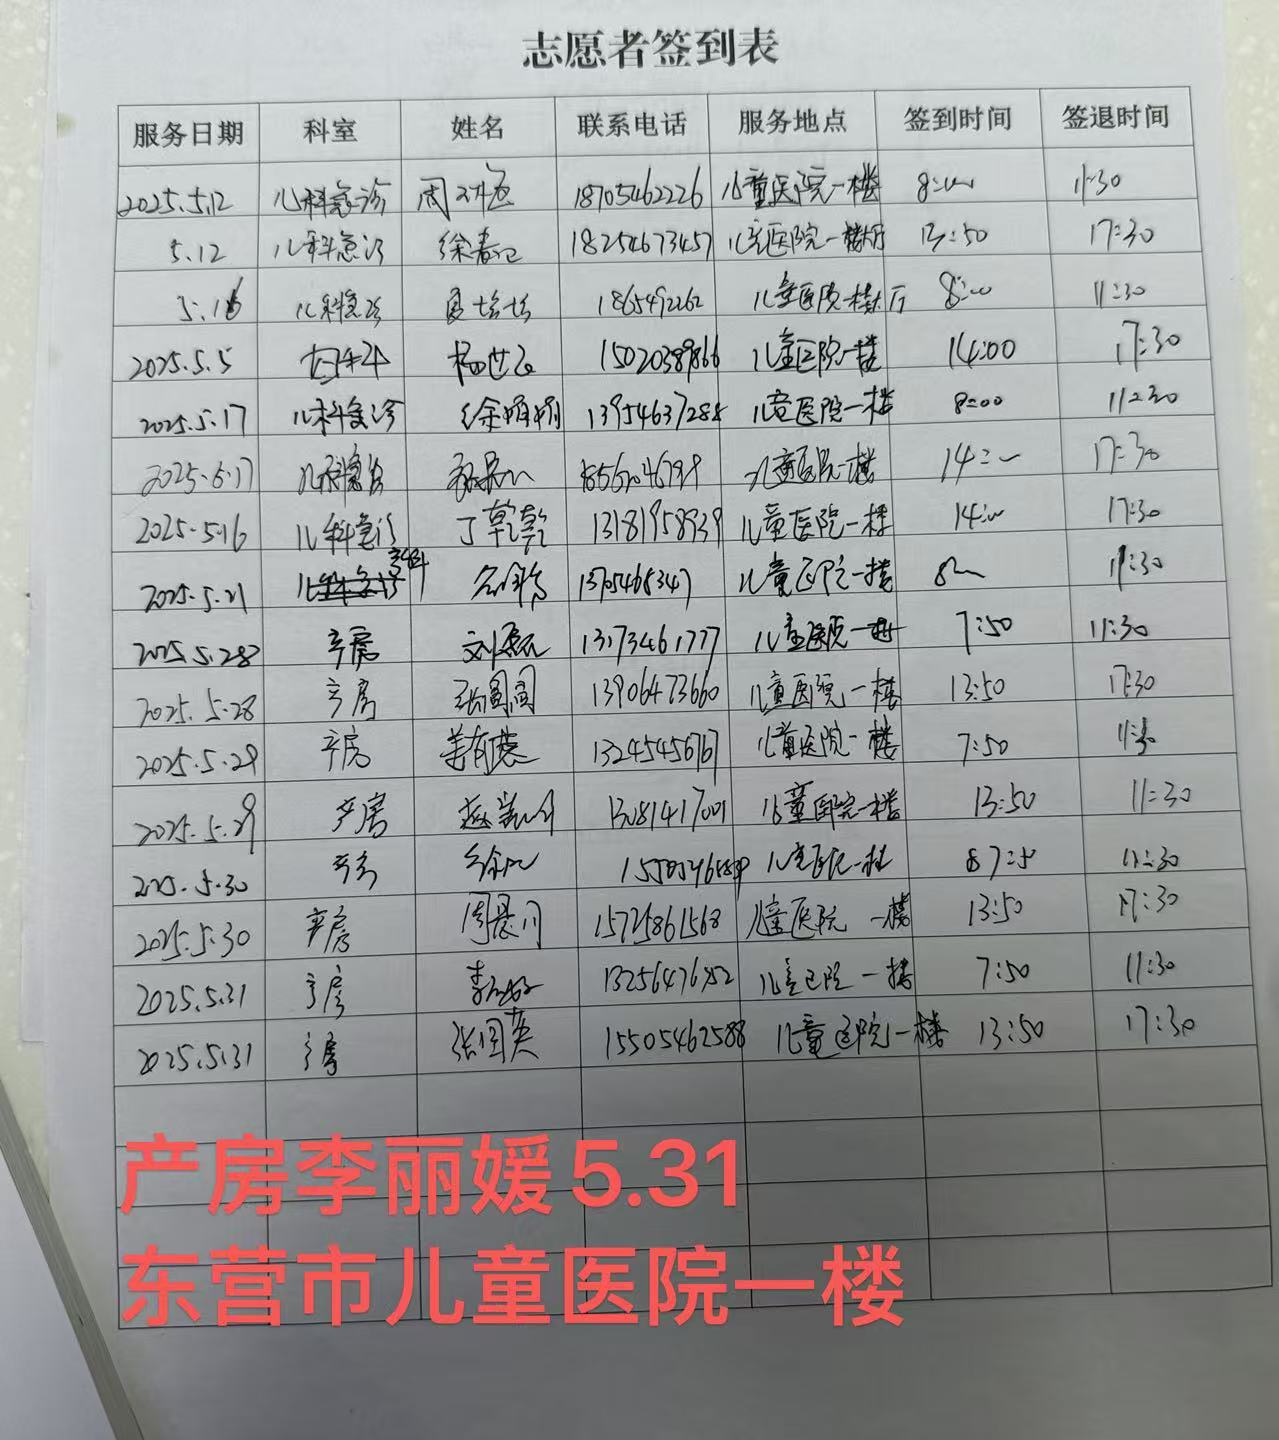 志愿者签到表
服务日期 科室 姓名 联系电话 服务地点 签到时间 签退时间
2025.5.12 儿科急诊 周 18705462226 儿童医院一楼 8:00 11:30
5.12 儿科急诊 徐春 18254673457 儿童医院一楼大厅 13:50 17:30
5.16 儿科急诊 1865492262 儿童医院一楼大厅 8:00 11:30
2025.5.5 杨世 15020389866 儿童医院一楼 14:00 17:30
2025.5.17 儿科急诊 徐娟娟 13954637288 儿童医院一楼 8:00 11:30
儿科急诊 儿童医院一楼 14:00 17:30
2025.5.16 儿科急诊 丁乾乾 13181958939 儿童医院一楼 14:00 17:30
2025.5.21 13705465347 儿童医院一楼 11:30
2025.5.28 产房 刘 13173461777 儿童医院一楼 7:50 11:30
2025.5.28 产房 张圆圆 13906473660 儿童医院一楼 13:50 17:30
2025.5.29 产房 姜有慧 13245456767 儿童医院一楼 7:50 11:30
2025.5.29 产房 赵 儿童医院一楼 13:50 11:30
2025.5.30 产房 徐 儿童医院一楼 7:50 11:30
2025.5.30 产房 周 15725861568 儿童医院一楼 13:50 17:30
2025.5.31 产房 李 儿童医院一楼 7:50 11:30
2025.5.31 产房 张国英 15505462588 儿童医院一楼 13:50 17:30
产房李丽媛5.31
东营市儿童医院一楼